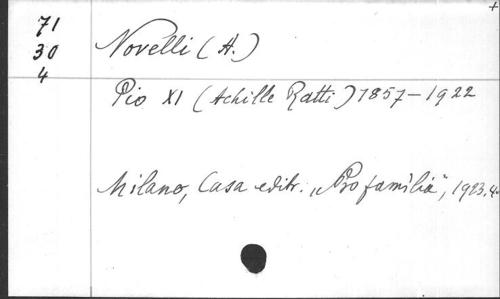 +
71
30
4
Novelli (A.)
Pio XI (Achille Ratti) 1857-1922
Milano, Casa editr. „Pro familia", 1923. 4°